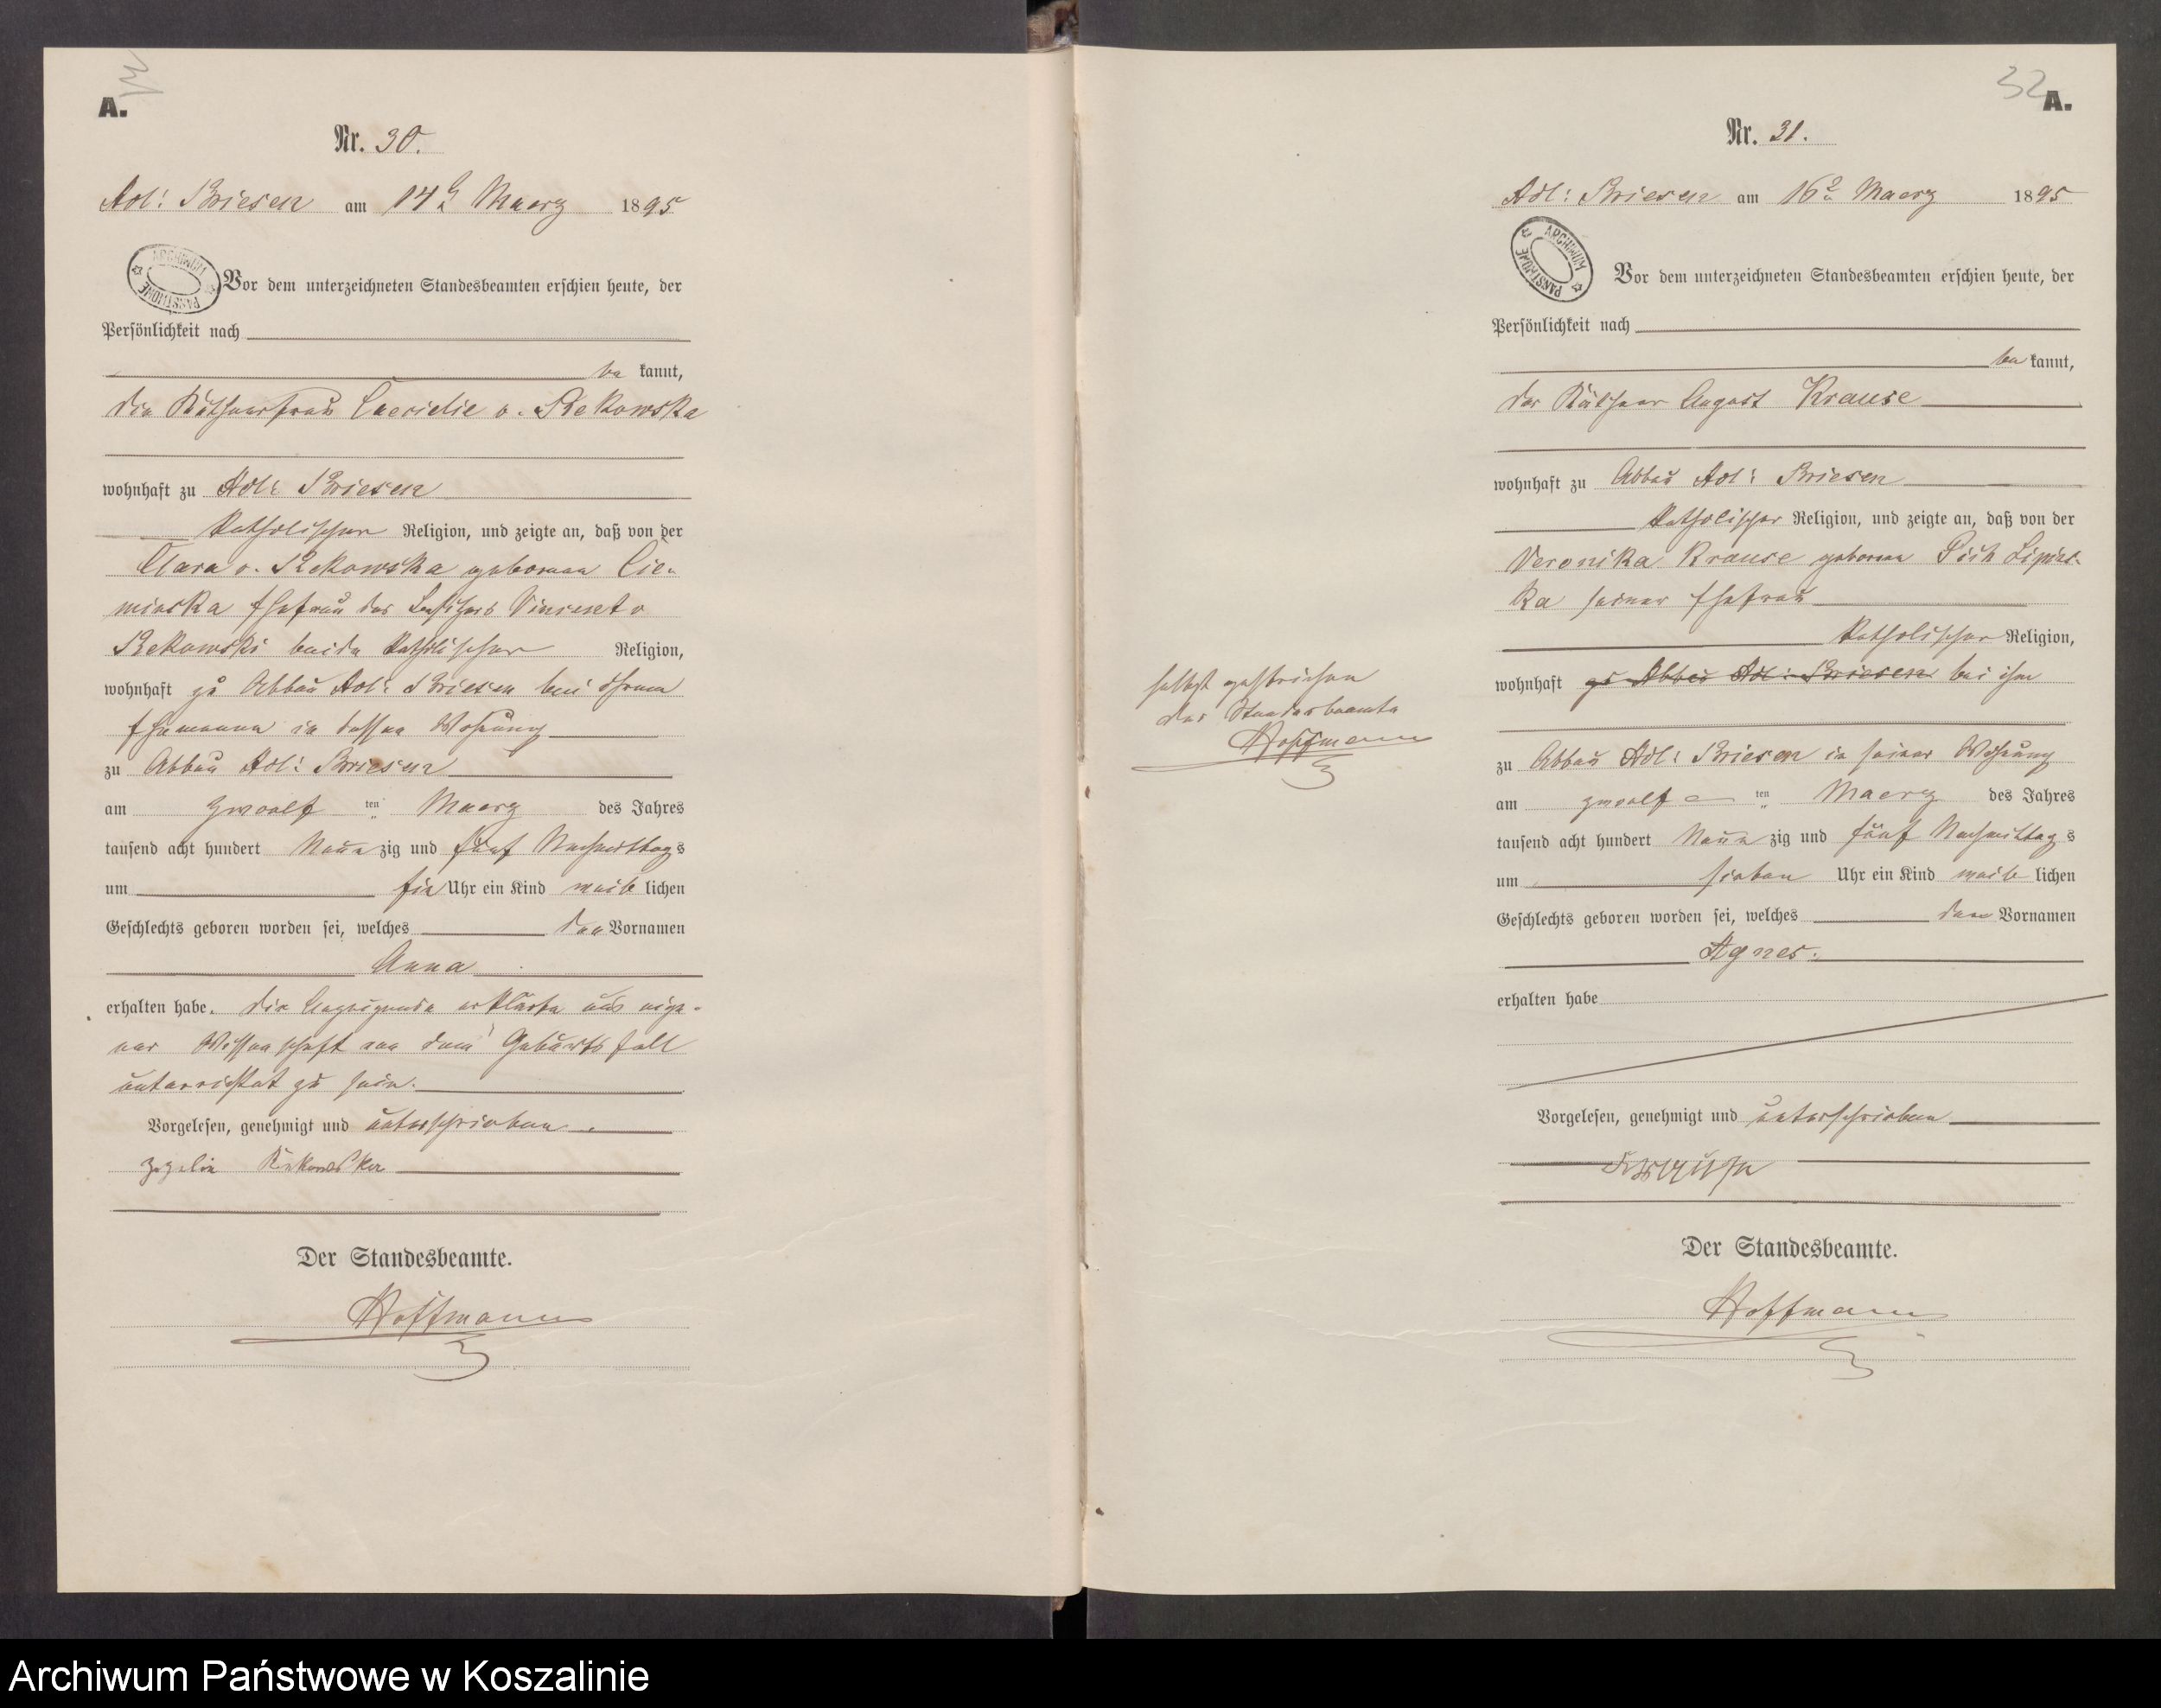 A.
Nr. 30.
Adl: Briesen am 14ten Maerz 1895
ARCHIWUM PAŃSTWOWE
Vor dem unterzeichneten Standesbeamten erschien heute, der
Persönlichkeit nach
be kannt,
die Käthnerfrau v. Rekowska
wohnhaft zu Adl: Briesen
katholischer Religion, und zeigte an, daß von der
Clara v. Rekowska geborenen Cie-
minska Ehefrau des Besitzers Vincent v
Rekowski beide katholischer Religion,
wohnhaft zu Abbau Adl: Briesen bei ihrem
Ehemanne in dessen Wohnung
zu Abbau Adl: Briesen
am zwoelf ten Maerz des Jahres
tausend acht hundert Neun zig und fünf Nachmittag s
um ein Uhr ein Kind weib lichen
Geschlechts geboren worden sei, welches den Vornamen
Anna
erhalten habe. Die Anzeigende erklärte aus eige-
ner Wissenschaft von dem Geburtsfall
unterrichtet zu sein.
Vorgelesen, genehmigt und unterschrieben.
Rekowska
Der Standesbeamte.
Hoffmann
32
A.
Nr. 31.
Adl: Briesen am 16ten Maerz 1895
ARCHIWUM PAŃSTWOWE
Vor dem unterzeichneten Standesbeamten erschien heute, der
Persönlichkeit nach
be kannt,
der Käthner August Krause
wohnhaft zu Abbau Adl: Briesen
katholischer Religion, und zeigte an, daß von der
Veronika Krause geborenen Lipins-
ka seiner Ehefrau
katholischer Religion,
wohnhaft zu Abbau Adl: Briesen bei ihm
zu Abbau Adl: Briesen in seiner Wohnung
am zwoelf ten Maerz des Jahres
tausend acht hundert Neun zig und fünf Nachmittag s
um sieben Uhr ein Kind weib lichen
Geschlechts geboren worden sei, welches den Vornamen
Agnes.
erhalten habe
Vorgelesen, genehmigt und unterschrieben
Der Standesbeamte.
Hoffmann
selbst gestrichen
der Standesbeamte
Hoffmann
Archiwum Państwowe w Koszalinie